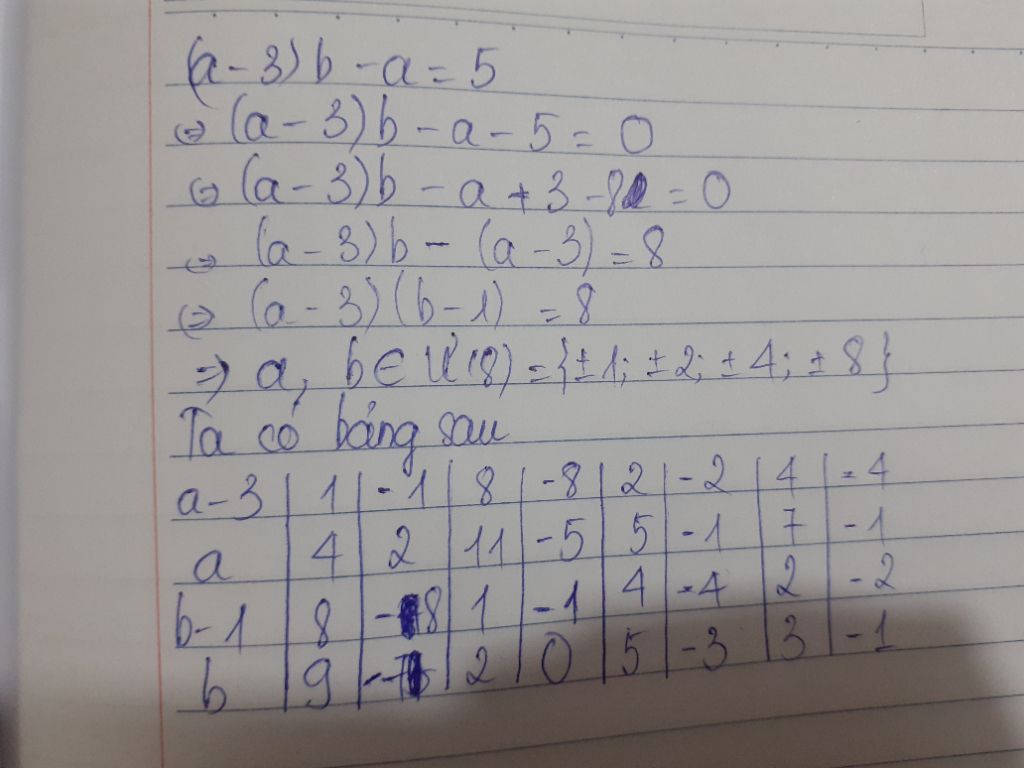 (a-3)b - a = 5
⇔ (a-3)b - a - 5 = 0
⇔ (a-3)b - a + 3 - 8 = 0
⇔ (a-3)b - (a-3) = 8
⇔ (a-3)(b-1) = 8
⇒ a, b ∈ Ư(8) = {±1; ±2; ±4; ±8}
Ta có bảng sau
a-3 | 1 | -1 | 8 | -8 | 2 | -2 | 4 | -4
a | 4 | 2 | 11 | -5 | 5 | -1 | 7 | -1
b-1 | 8 | -8 | 1 | -1 | 4 | -4 | 2 | -2
b | 9 | | 2 | 0 | 5 | -3 | 3 | -1